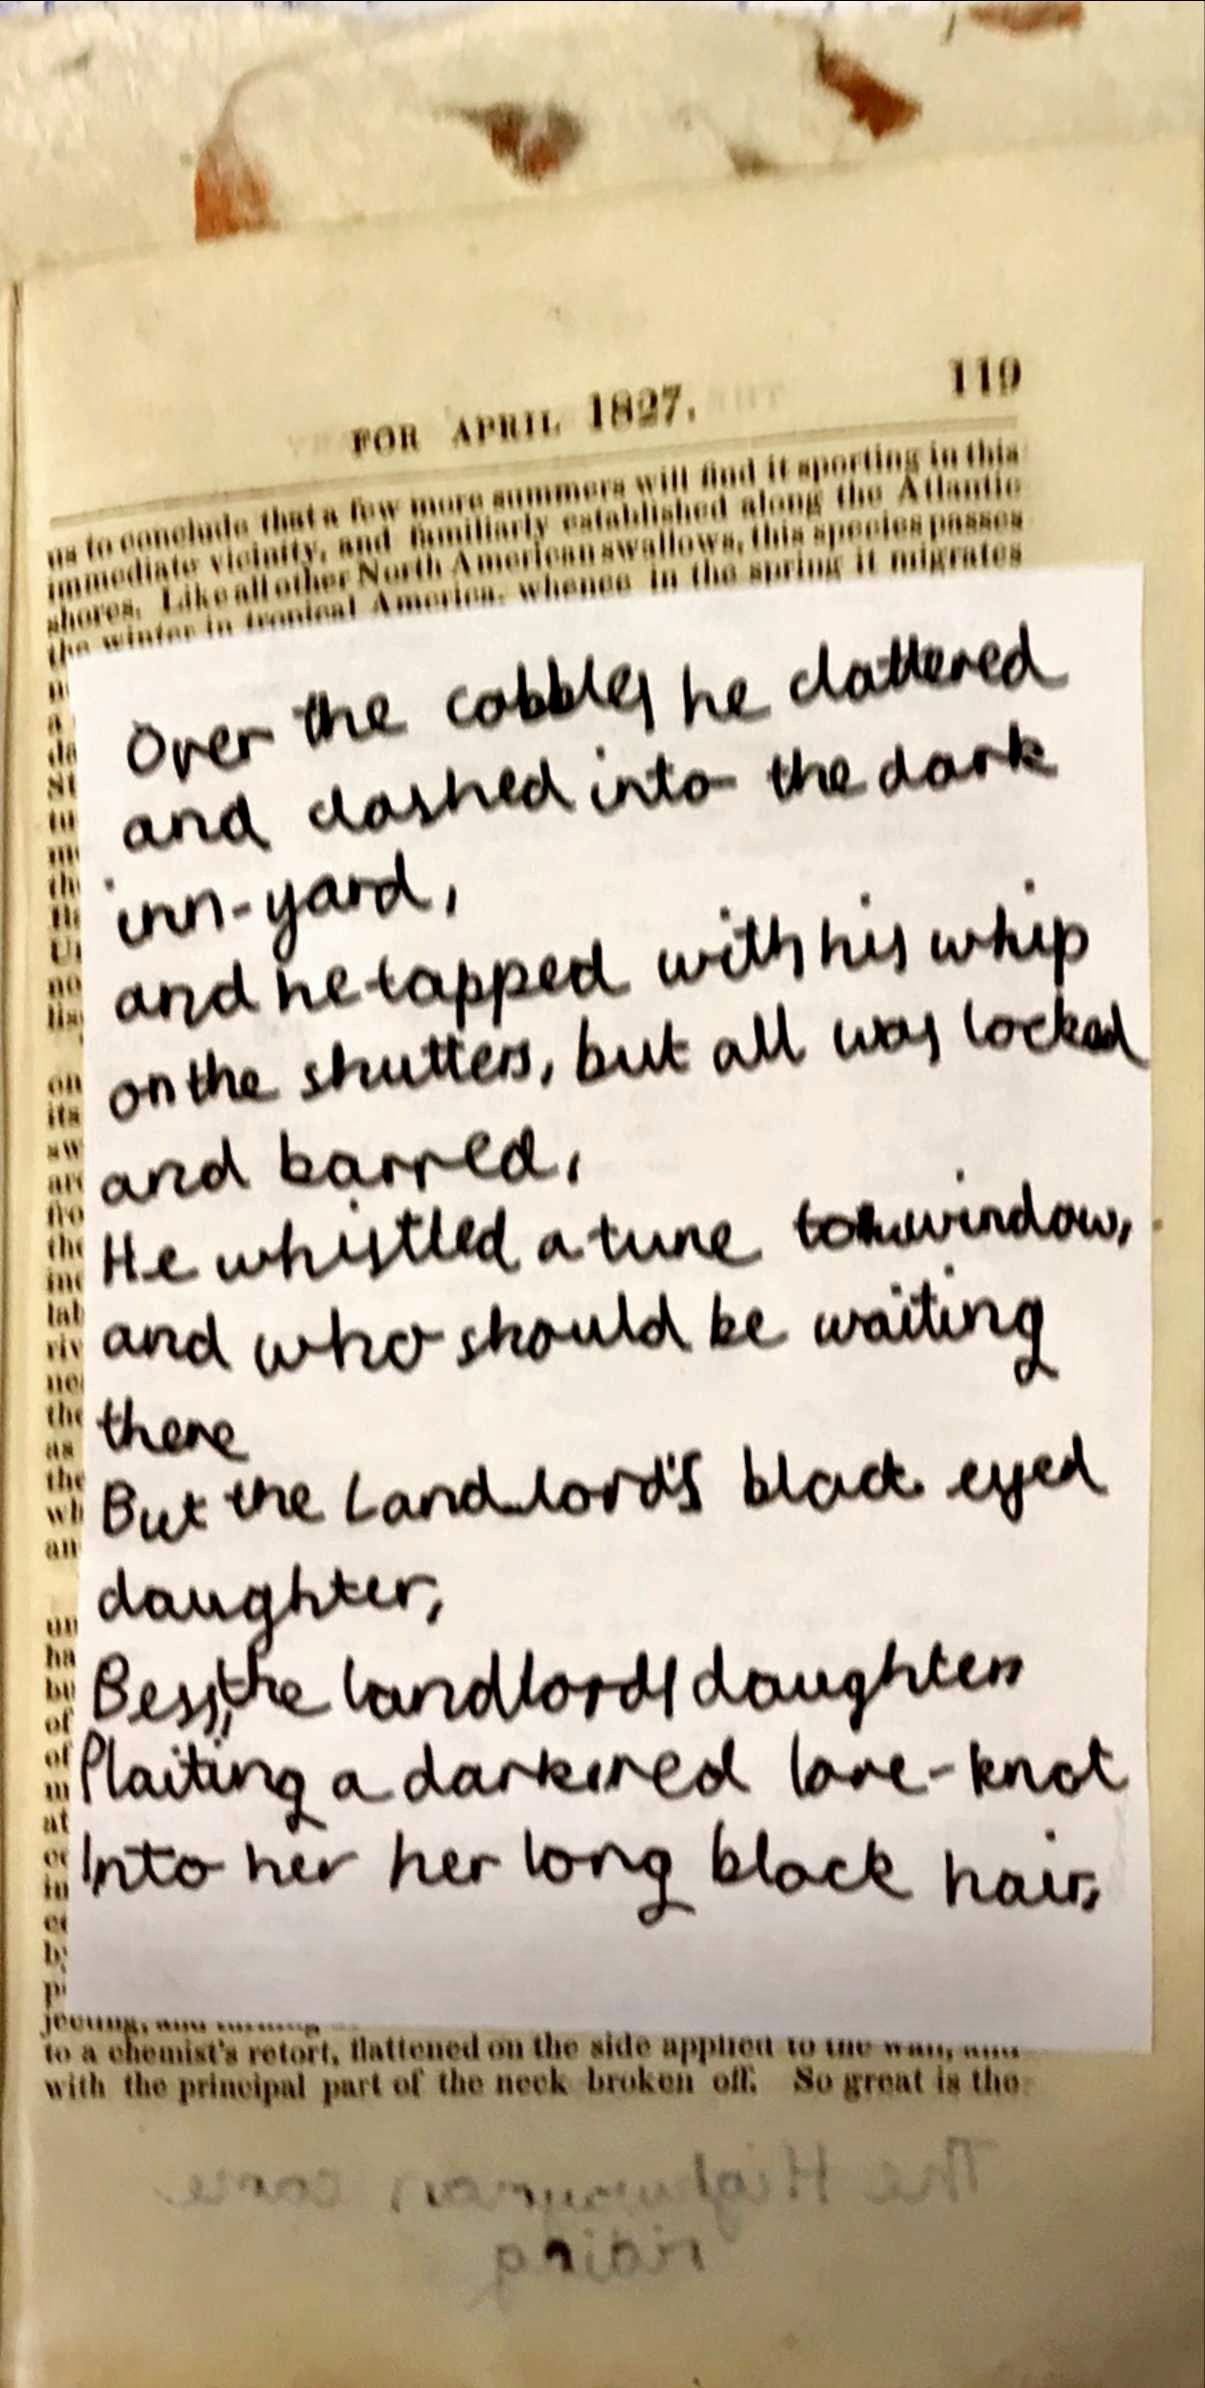 FOR APRIL 1827.
119
us to conclude that a few more summers will find it sporting in this
immediate vicinity, and familiarly established along the Atlantic
shores. Like all other North American swallows, this species passes
the winter in tropical America, whence in the spring it migrates
Over the cobbles he clattered
and clashed into the dark
inn-yard,
and he tapped with his whip
on the shutters, but all was locked
and barred,
He whistled a tune to window,
and who should be waiting
there
But the Landlord's black eyed
daughter,
Bess, the landlords daughter
Plaiting a dark red love-knot
Into her her long black hair,
to a chemist's retort, flattened on the side applied to the wall, and
with the principal part of the neck broken off. So great is the
The Highwayman came
riding